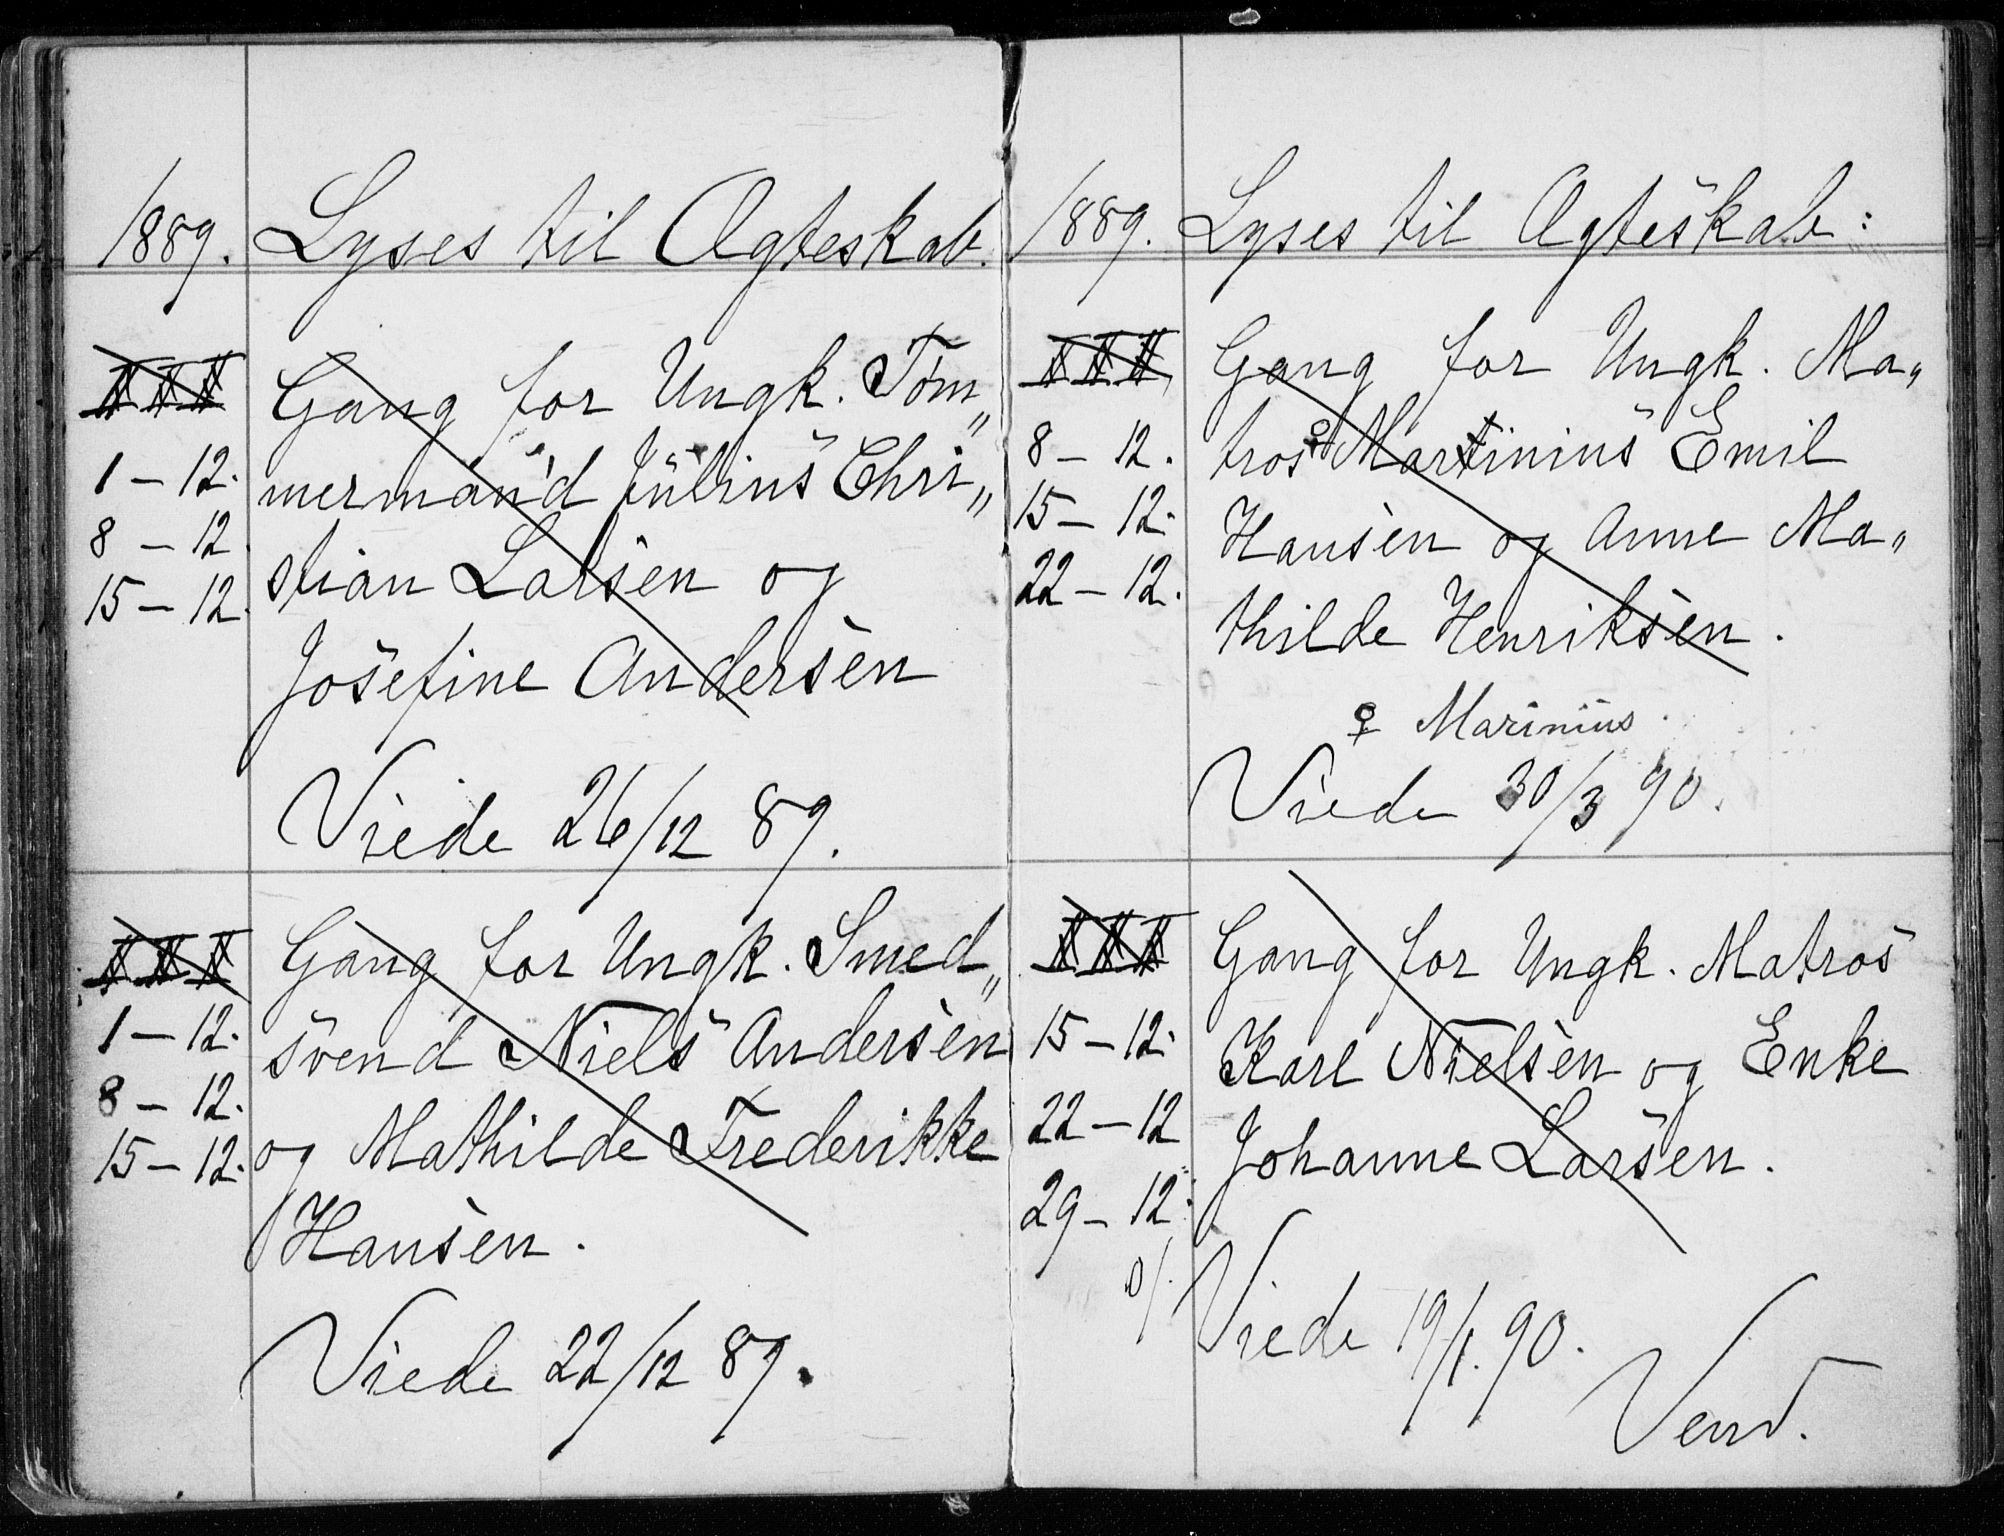 1889. Lyses til Ægteskab.
Gang for Ungk. Töm„
1 – 12. mermand Julius Chri„
8 – 12. stian Larsen og
15 – 12. Josefine Andersen
Viede 26/12 89.
Gang for Ungk. Smed„
1 – 12. svend Niels Andersen
8 – 12. og Mathilde Frederikke
15 – 12. Hansen.
Viede 22/12 89.
1889. Lyses til Ægteskab:
Gang for Ungk. Ma„
8 – 12. tros ♀ Martinius Emil
15 – 12. Hansen og Anne Ma„
22 – 12. thilde Henriksen.
♀ Marinius
Viede 30/3 90.
Gang for Ungk. Matros
15 – 12. Karl Nielsen og Enke
22 – 12 Johanne Larsen.
29 – 12.
Viede 19/1. 90.
Vend.